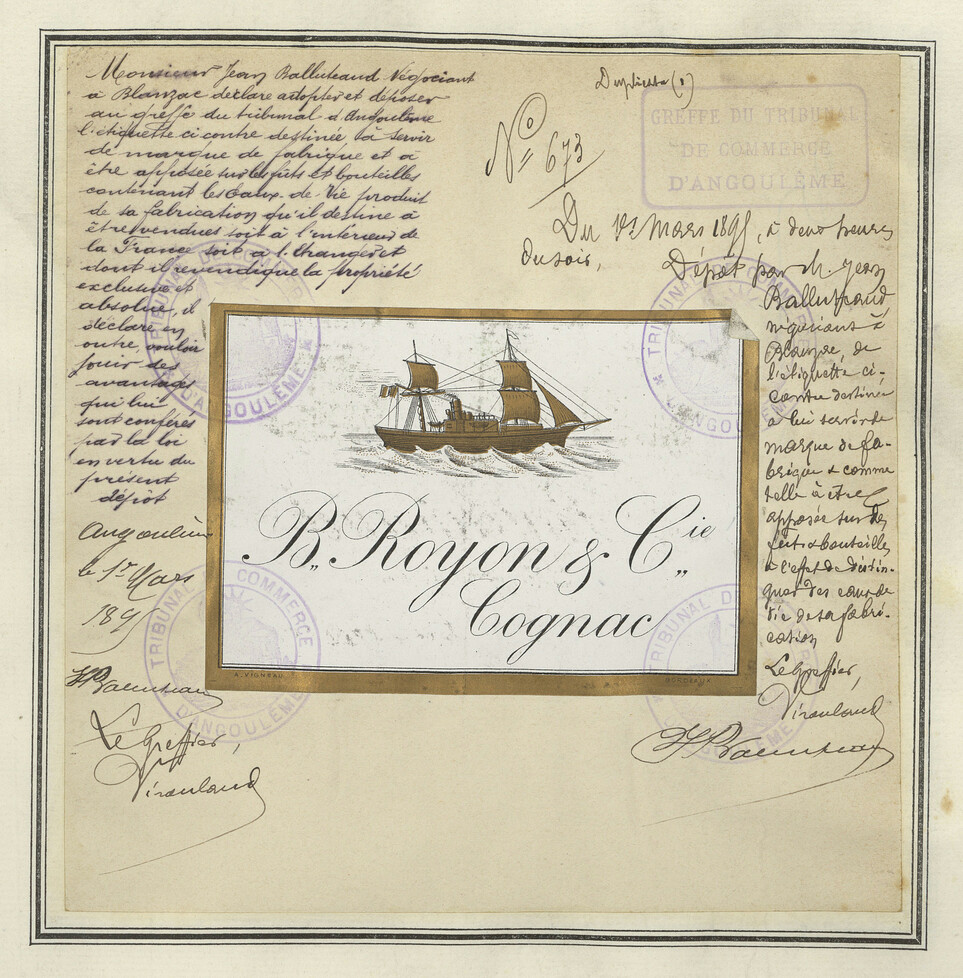 Monsieur Jean Balluteaud Négociant
à Blanzac déclare adopter et déposer
au greffe du tribunal d'Angoulême
l'étiquette ci contre destinée à servir
de marque de fabrique et à
être apposée sur les fûts et bouteilles
contenant les Eaux-de-Vie produit
de sa fabrication qu'il destine à
être vendues soit à l'intérieur de
la France soit à l'Etranger et
dont il revendique la propriété
exclusive et
absolue, il
déclare en
outre, vouloir
jouir des
avantages
qui lui
sont conférés
par la loi
en vertu du
présent
dépôt
Angoulême
le 1er Mars
189
Le Greffier,
Duplicata (1)
N° 673
GREFFE DU TRIBUNAL
DE COMMERCE
D'ANGOULÊME
Du 1er Mars 189, à deux heures
du soir,
Dépôt par M. Jean
Balluteaud
négociant à
Blanzac, de
l'étiquette ci-
contre destinée
à lui servir de
marque de fa-
brique & comme
telle à être
apposée sur des
fûts & bouteilles
à l'effet de distin-
guer des eaux de
vie de sa fabri-
cation
Le Greffier,
B. Royon & Cie
Cognac
A. VIGNEAU
BORDEAUX
TRIBUNAL DE COMMERCE
D'ANGOULÊME
TRIBUNAL DE COMMERCE
D'ANGOULÊME
TRIBUNAL DE COMMERCE
D'ANGOULÊME
TRIBUNAL DE COMMERCE
D'ANGOULÊME